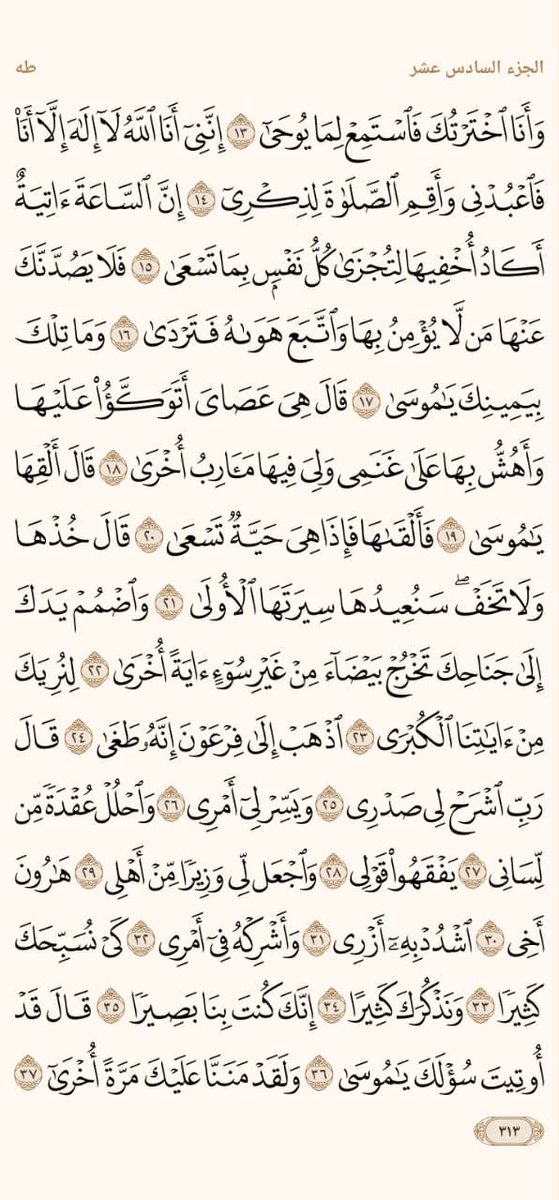 الجزء السادس عشر
طه
وَأَنَا ٱخۡتَرۡتُكَ فَٱسۡتَمِعۡ لِمَا يُوحَىٰٓ ١٣ إِنَّنِيٓ أَنَا ٱللَّهُ لَآ إِلَٰهَ إِلَّآ أَنَا۠
فَٱعۡبُدۡنِي وَأَقِمِ ٱلصَّلَوٰةَ لِذِكۡرِيٓ ١٤ إِنَّ ٱلسَّاعَةَ ءَاتِيَةٌ
أَكَادُ أُخۡفِيهَا لِتُجۡزَىٰ كُلُّ نَفۡسِۭ بِمَا تَسۡعَىٰ ١٥ فَلَا يَصُدَّنَّكَ
عَنۡهَا مَن لَّا يُؤۡمِنُ بِهَا وَٱتَّبَعَ هَوَىٰهُ فَتَرۡدَىٰ ١٦ وَمَا تِلۡكَ
بِيَمِينِكَ يَٰمُوسَىٰ ١٧ قَالَ هِيَ عَصَايَ أَتَوَكَّؤُاْ عَلَيۡهَا
وَأَهُشُّ بِهَا عَلَىٰ غَنَمِي وَلِيَ فِيهَا مَـَٔارِبُ أُخۡرَىٰ ١٨ قَالَ أَلۡقِهَا
يَٰمُوسَىٰ ١٩ فَأَلۡقَىٰهَا فَإِذَا هِيَ حَيَّةٞ تَسۡعَىٰ ٢٠ قَالَ خُذۡهَا
وَلَا تَخَفۡۖ سَنُعِيدُهَا سِيرَتَهَا ٱلۡأُولَىٰ ٢١ وَٱضۡمُمۡ يَدَكَ
إِلَىٰ جَنَاحِكَ تَخۡرُجۡ بَيۡضَآءَ مِنۡ غَيۡرِ سُوٓءٍ ءَايَةً أُخۡرَىٰ ٢٢ لِنُرِيَكَ
مِنۡ ءَايَٰتِنَا ٱلۡكُبۡرَى ٢٣ ٱذۡهَبۡ إِلَىٰ فِرۡعَوۡنَ إِنَّهُۥ طَغَىٰ ٢٤ قَالَ
رَبِّ ٱشۡرَحۡ لِي صَدۡرِي ٢٥ وَيَسِّرۡ لِيٓ أَمۡرِي ٢٦ وَٱحۡلُلۡ عُقۡدَةٗ مِّن
لِّسَانِي ٢٧ يَفۡقَهُواْ قَوۡلِي ٢٨ وَٱجۡعَل لِّي وَزِيرٗا مِّنۡ أَهۡلِي ٢٩ هَٰرُونَ
أَخِي ٣٠ ٱشۡدُدۡ بِهِۦٓ أَزۡرِي ٣١ وَأَشۡرِكۡهُ فِيٓ أَمۡرِي ٣٢ كَيۡ نُسَبِّحَكَ
كَثِيرٗا ٣٣ وَنَذۡكُرَكَ كَثِيرًا ٣٤ إِنَّكَ كُنتَ بِنَا بَصِيرٗا ٣٥ قَالَ قَدۡ
أُوتِيتَ سُؤۡلَكَ يَٰمُوسَىٰ ٣٦ وَلَقَدۡ مَنَنَّا عَلَيۡكَ مَرَّةً أُخۡرَىٰٓ ٣٧
٣١٣